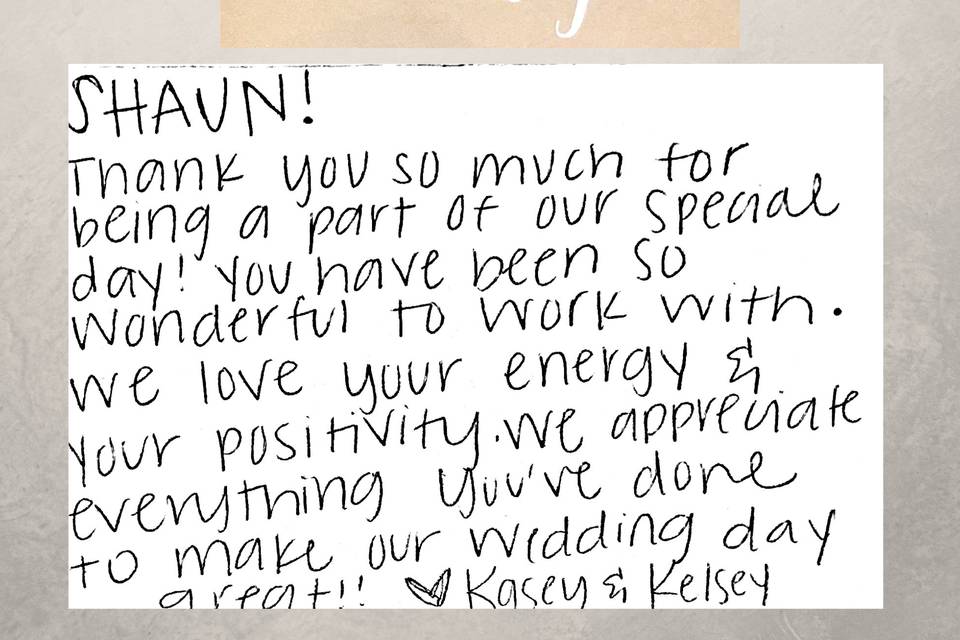 SHAUN!
Thank you so much for
being a part of our special
day! You have been so
wonderful to work with.
We love your energy &
your positivity. We appreciate
everything you've done
to make our wedding day
great!! ♥ Kasey & Kelsey